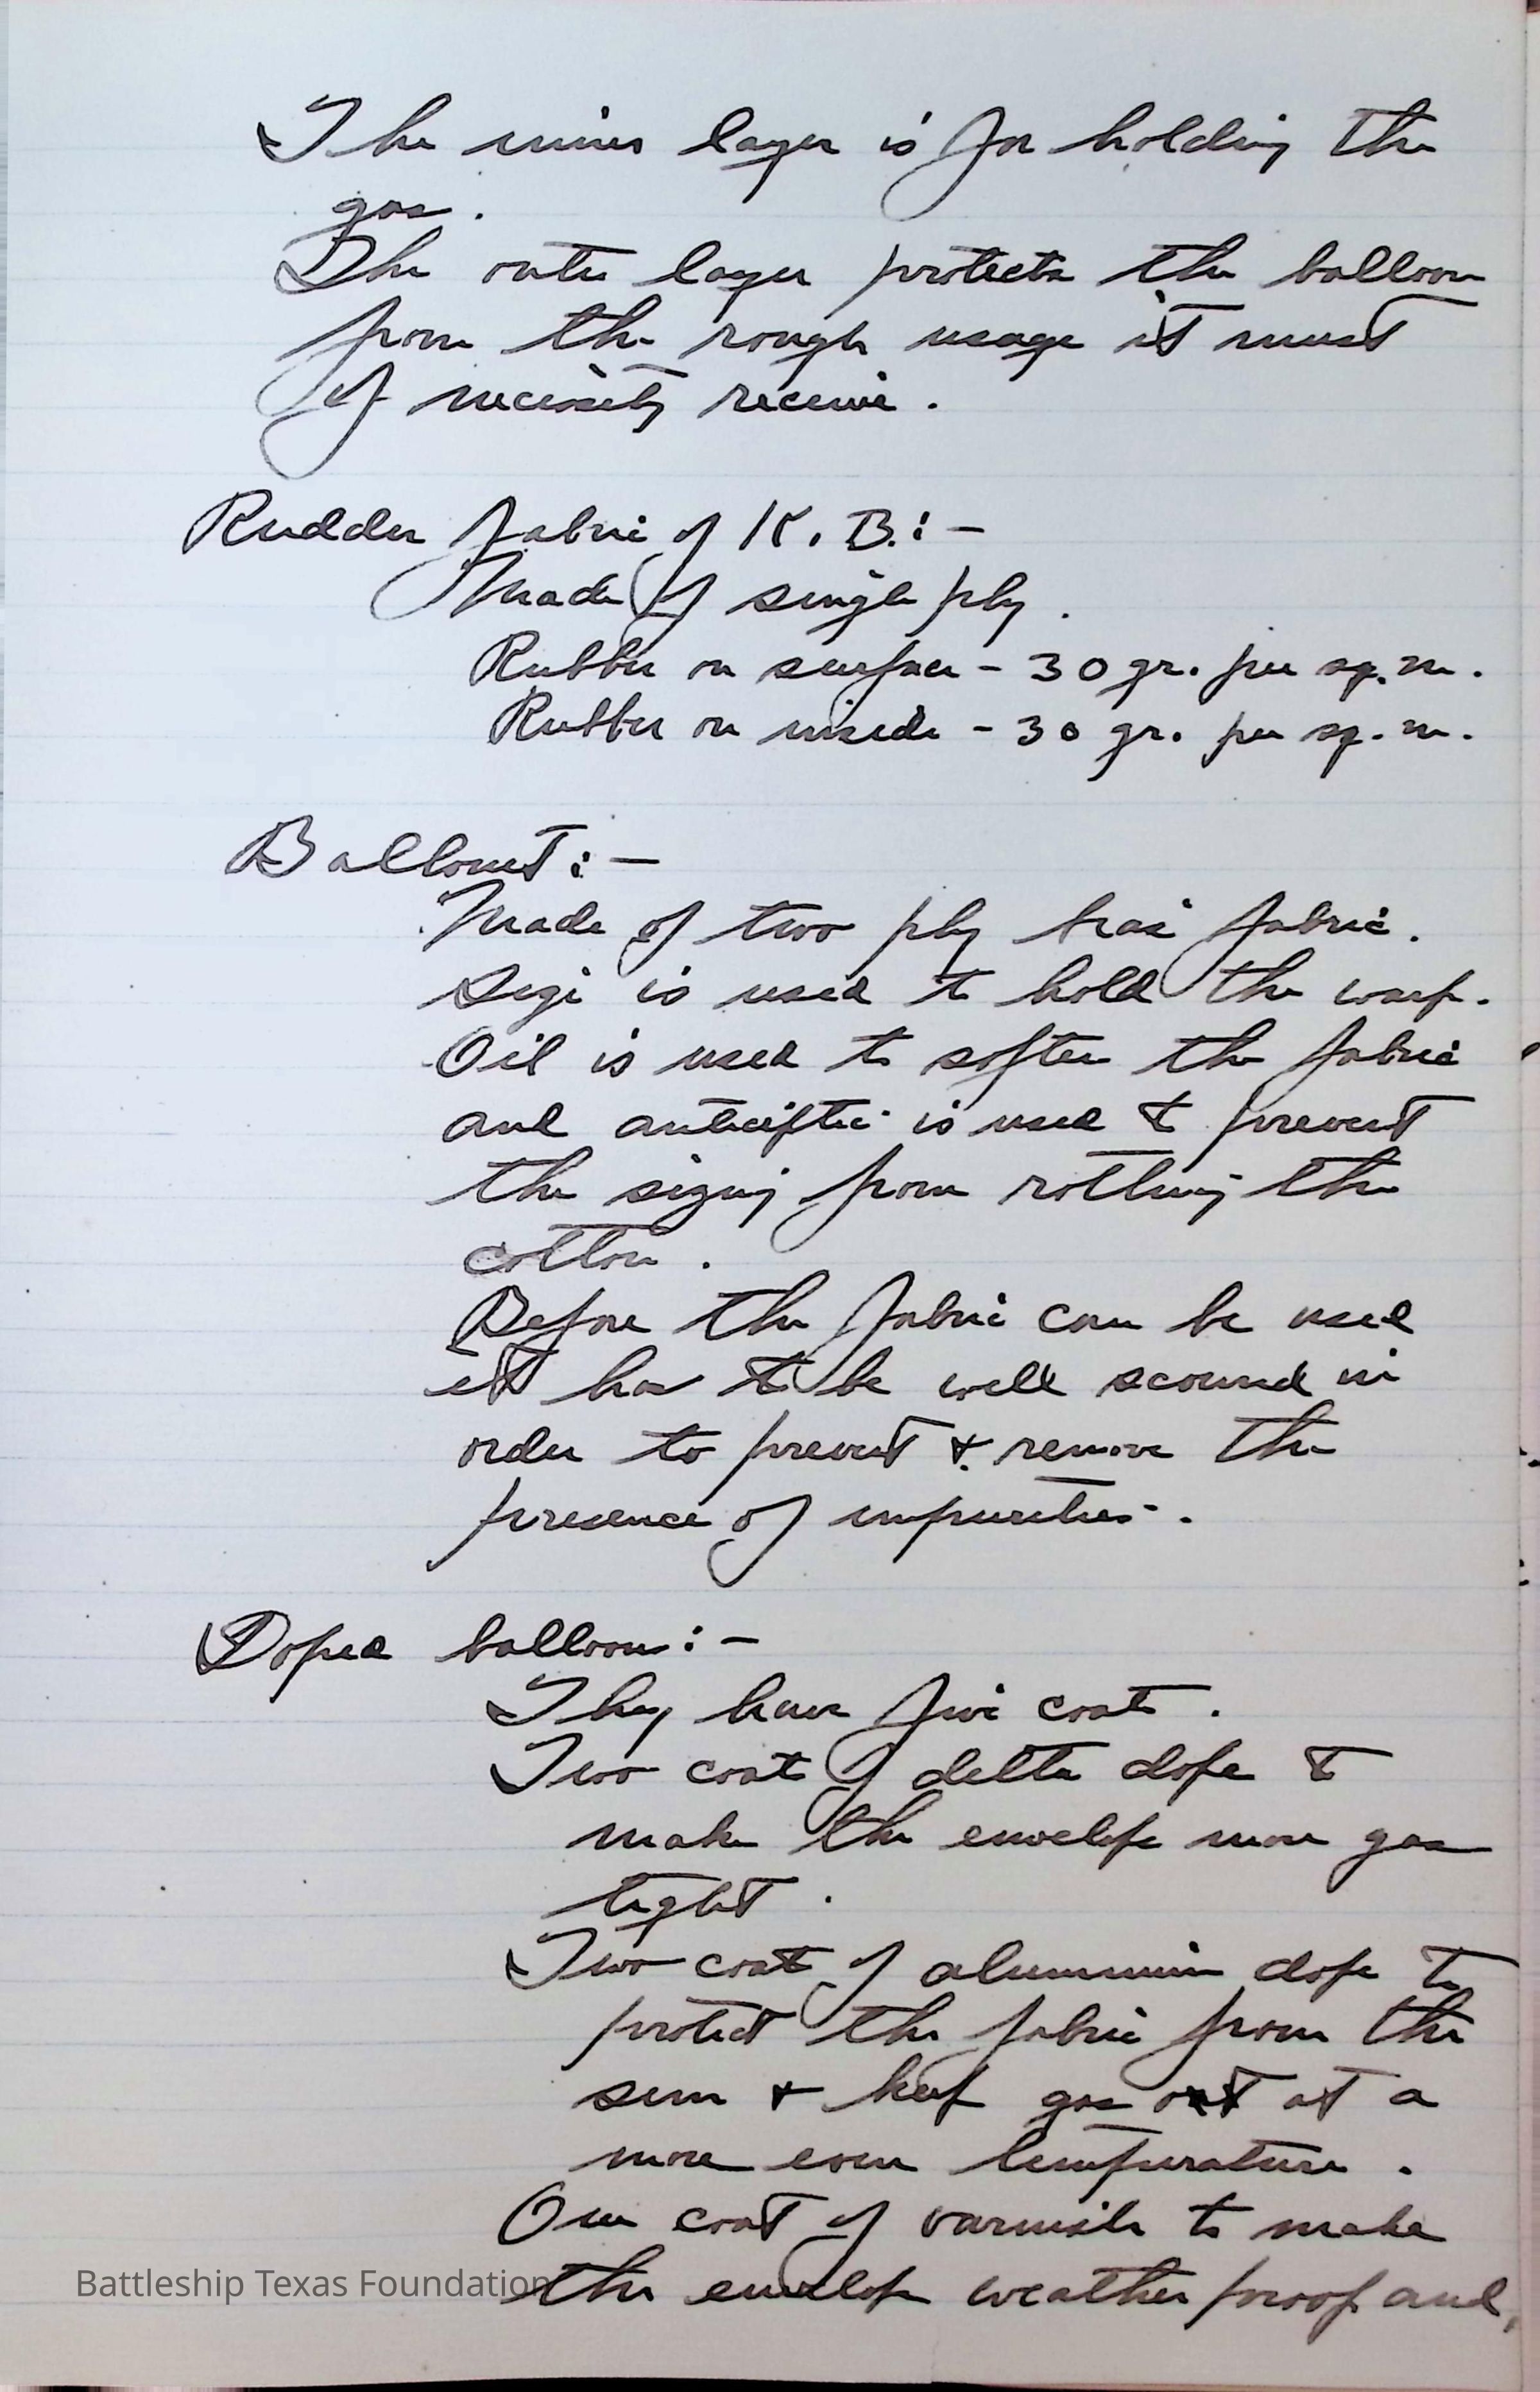 The inner layer is for holding the
gas.
The outer layer protects the balloon
from the rough usage it must
of necessity receive.
Rudder fabric of K. B.:-
Made of single ply.
Rubber on surface - 30 gr. per sq. m.
Rubber on inside - 30 gr. per sq. m.
Ballonet:-
Made of two ply bias fabric.
Size is used to hold the warp.
Oil is used to soften the fabric
and anticeptic is used to prevent
the sizing from rotting the
cotton.
Before the fabric can be used
it has to be well scoured in
order to prevent & remove the
presence of impurities.
Doped balloon:-
They have five coats.
Two coats of delta dope to
make the envelope more gas
tight.
Two coats of aluminum dope to
protect the fabric from the
sun & keep gas at a
more even temperature.
One coat of varnish to make
the envelope weather proof and,
Battleship Texas Foundation